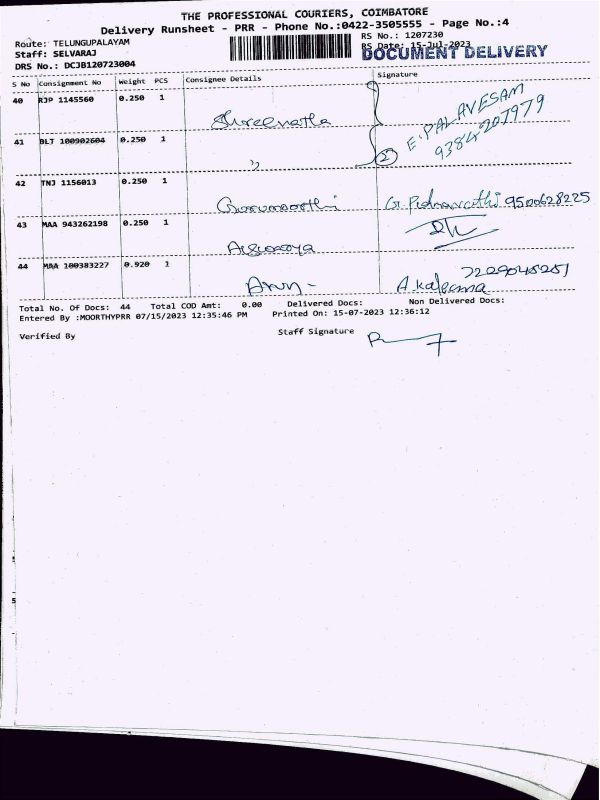 THE PROFESSIONAL COURIERS, COIMBATORE
Delivery Runsheet - PRR - Phone No.:0422-3505555 - Page No.:4
Route: TELUNGUPALAYAM
RS No.: 1207230
Staff: SELVARAJ
RS Date: 15-Jul-2023
DOCUMENT DELIVERY
DRS No.: DCJB120723004
S No Consignment No Weight PCS Consignee Details Signature
40 RJP 1145560 0.250 1 Shreevatha
E. PALAVESAM
9384207979
41 BLT 100902604 0.250 1 " 2
42 TNJ 1156013 0.250 1 Gurumoorthi 9500628225
43 MAA 943262198 0.250 1
44 MAA 100383227 0.920 1 Arun - A. Kaleema
7229045251
Total No. Of Docs: 44 Total COD Amt: 0.00 Delivered Docs: Non Delivered Docs:
Entered By :MOORTHYPRR 07/15/2023 12:35:46 PM Printed On: 15-07-2023 12:36:12
Verified By Staff Signature